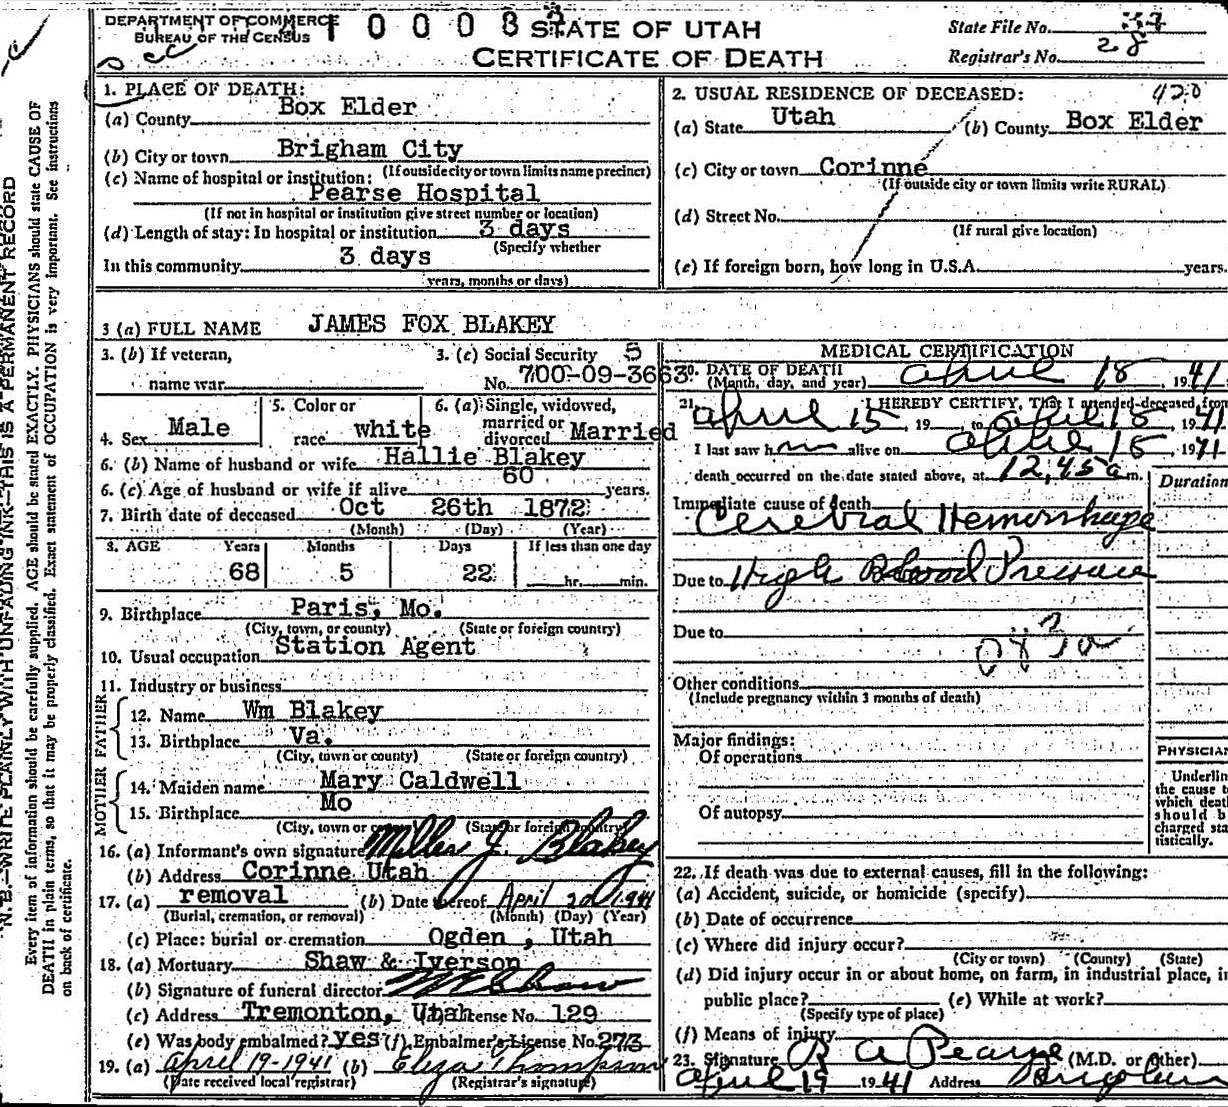 DEPARTMENT OF COMMERCE
BUREAU OF THE CENSUS
1 0 0 0 8
STATE OF UTAH
CERTIFICATE OF DEATH
State File No.
Registrar's No. 28
N. B.—WRITE PLAINLY WITH UNFADING INK—THIS IS A PERMANENT RECORD
Every item of information should be carefully supplied. AGE should be stated EXACTLY. PHYSICIANS should state CAUSE OF
DEATH in plain terms, so that it may be properly classified. Exact statement of OCCUPATION is very important. See instructions
on back of certificate.
1. PLACE OF DEATH:
(a) County Box Elder
(b) City or town Brigham City
(If outside city or town limits name precinct)
(c) Name of hospital or institution:
Pearse Hospital
(If not in hospital or institution give street number or location)
(d) Length of stay: In hospital or institution 3 days
(Specify whether
In this community 3 days
years, months or days)
2. USUAL RESIDENCE OF DECEASED: 420
(a) State Utah (b) County Box Elder
(c) City or town Corinne
(If outside city or town limits write RURAL)
(d) Street No.
(If rural give location)
(e) If foreign born, how long in U.S.A. years.
3 (a) FULL NAME JAMES FOX BLAKEY
3. (b) If veteran,
name war
3. (c) Social Security 5
No. 700-09-3663
4. Sex Male
5. Color or
race white
6. (a) Single, widowed,
married or
divorced Married
6. (b) Name of husband or wife Hallie Blakey
6. (c) Age of husband or wife if alive 60 years.
7. Birth date of deceased Oct 26th 1872
(Month) (Day) (Year)
8. AGE Years Months Days If less than one day
68 5 22 hr. min.
9. Birthplace Paris, Mo.
(City, town, or county) (State or foreign country)
10. Usual occupation Station Agent
11. Industry or business
FATHER
12. Name Wm Blakey
13. Birthplace Va.
(City, town or county) (State or foreign country)
MOTHER
14. Maiden name Mary Caldwell
15. Birthplace Mo
(City, town or county) (State or foreign country)
16. (a) Informant's own signature J. Blakey
(b) Address Corinne Utah
17. (a) removal (b) Date thereof April 20 1941
(Burial, cremation, or removal) (Month) (Day) (Year)
(c) Place: burial or cremation Ogden, Utah
18. (a) Mortuary Shaw & Iverson
(b) Signature of funeral director Shaw
(c) Address Tremonton, Utah License No. 129
(e) Was body embalmed? yes (f) Embalmer's License No. 273
19. (a) April 19-1941 (b) Eliza Thompson
(Date received local registrar) (Registrar's signature)
MEDICAL CERTIFICATION
20. DATE OF DEATH
(Month, day, and year) April 18, 1941
21. I HEREBY CERTIFY, That I attended deceased from
April 15, 19 to April 18 1941
I last saw h m alive on April 18 1941
death occurred on the date stated above, at 12,45 a m.
Duration
Immediate cause of death
Cerebral Hemorrhage
Due to High Blood Pressure
Due to
Other conditions
(Include pregnancy within 3 months of death)
Major findings:
Of operations
Of autopsy
PHYSICIAN
Underlin
the cause t
which deat
should b
charged sta
tistically.
22. If death was due to external causes, fill in the following:
(a) Accident, suicide, or homicide (specify)
(b) Date of occurrence
(c) Where did injury occur?
(City or town) (County) (State)
(d) Did injury occur in or about home, on farm, in industrial place, in
public place? (e) While at work?
(Specify type of place)
(f) Means of injury
23. Signature R A Pearse (M.D. or Other)
April 19 1941 Address Brigham